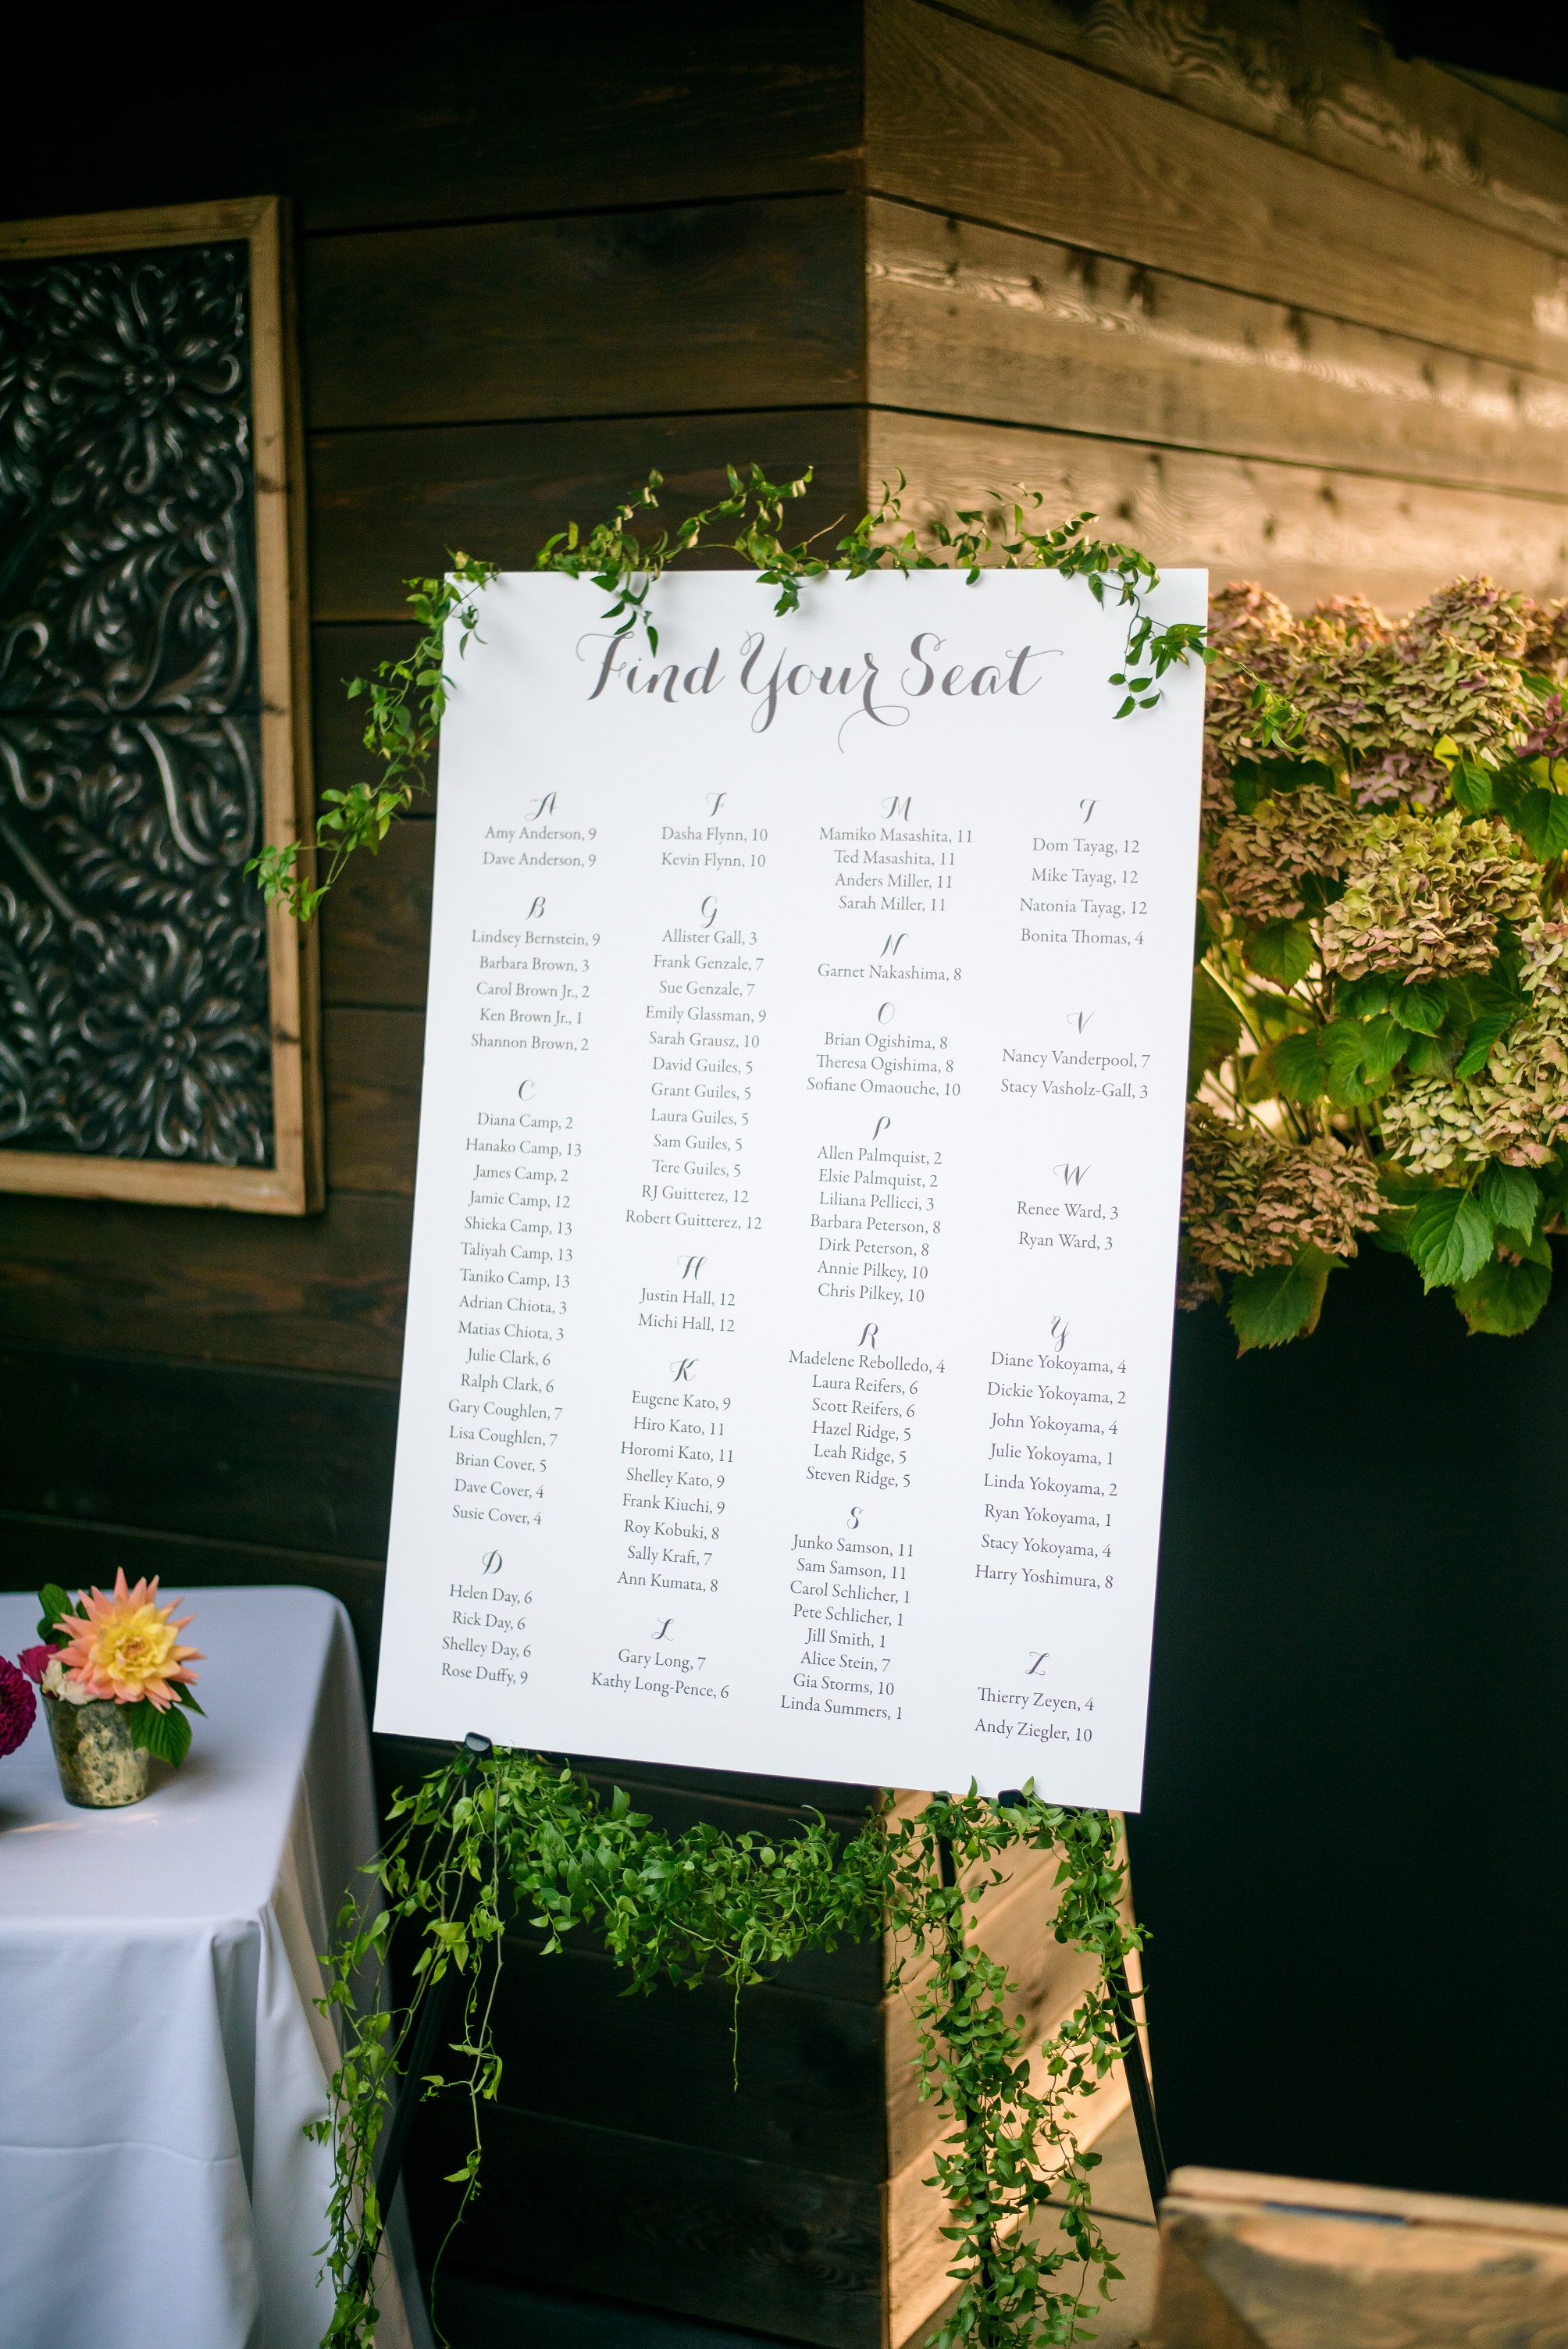 Find Your Seat
A
Amy Anderson, 9
Dave Anderson, 9
B
Lindsey Bernstein, 9
Barbara Brown, 3
Carol Brown Jr., 2
Ken Brown Jr., 1
Shannon Brown, 2
C
Diana Camp, 2
Hanako Camp, 13
James Camp, 2
Jamie Camp, 12
Shieka Camp, 13
Taliyah Camp, 13
Taniko Camp, 13
Adrian Chiota, 3
Matias Chiota, 3
Julie Clark, 6
Ralph Clark, 6
Gary Coughlen, 7
Lisa Coughlen, 7
Brian Cover, 5
Dave Cover, 4
Susie Cover, 4
D
Helen Day, 6
Rick Day, 6
Shelley Day, 6
Rose Duffy, 9
F
Dasha Flynn, 10
Kevin Flynn, 10
G
Allister Gall, 3
Frank Genzale, 7
Sue Genzale, 7
Emily Glassman, 9
Sarah Grausz, 10
David Guiles, 5
Grant Guiles, 5
Laura Guiles, 5
Sam Guiles, 5
Tere Guiles, 5
RJ Guitterez, 12
Robert Guitterez, 12
H
Justin Hall, 12
Michi Hall, 12
K
Eugene Kato, 9
Hiro Kato, 11
Horomi Kato, 11
Shelley Kato, 9
Frank Kiuchi, 9
Roy Kobuki, 8
Sally Kraft, 7
Ann Kumata, 8
L
Gary Long, 7
Kathy Long-Pence, 6
M
Mamiko Masashita, 11
Ted Masashita, 11
Anders Miller, 11
Sarah Miller, 11
N
Garnet Nakashima, 8
O
Brian Ogishima, 8
Theresa Ogishima, 8
Sofiane Omaouche, 10
P
Allen Palmquist, 2
Elsie Palmquist, 2
Liliana Pellicci, 3
Barbara Peterson, 8
Dirk Peterson, 8
Annie Pilkey, 10
Chris Pilkey, 10
R
Madelene Rebolledo, 4
Laura Reifers, 6
Scott Reifers, 6
Hazel Ridge, 5
Leah Ridge, 5
Steven Ridge, 5
S
Junko Samson, 11
Sam Samson, 11
Carol Schlicher, 1
Pete Schlicher, 1
Jill Smith, 1
Alice Stein, 7
Gia Storms, 10
Linda Summers, 1
T
Dom Tayag, 12
Mike Tayag, 12
Natonia Tayag, 12
Bonita Thomas, 4
V
Nancy Vanderpool, 7
Stacy Vasholz-Gall, 3
W
Renee Ward, 3
Ryan Ward, 3
Y
Diane Yokoyama, 4
Dickie Yokoyama, 2
John Yokoyama, 4
Julie Yokoyama, 1
Linda Yokoyama, 2
Ryan Yokoyama, 1
Stacy Yokoyama, 4
Harry Yoshimura, 8
Z
Thierry Zeyen, 4
Andy Ziegler, 10